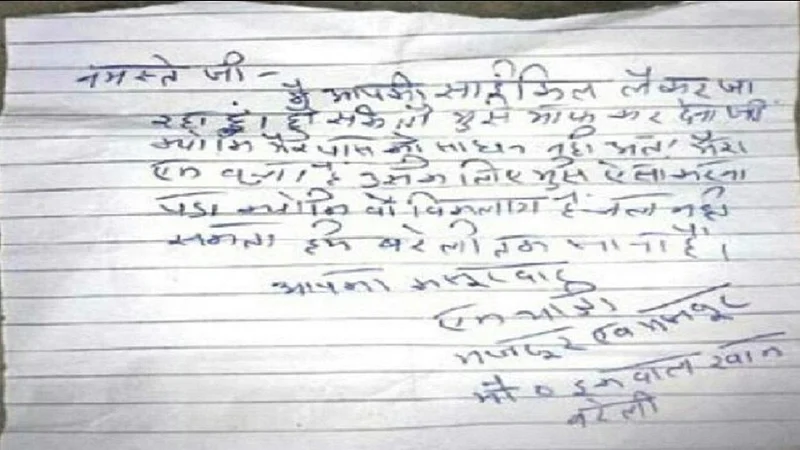 नमस्ते जी -
मै आपकी साईकिल लेकर जा
रहा हूं। हो सके तो मुझे माफ कर देना जी
क्योकि मेरे पास को साधन नही अत। मेरा
एक बच्चा है उसके लिए मुझे ऐसा करना
पडा क्योकि वो विकलांग है चल नही
सकता हमे बरेली तक जाना है।
आपका कसूरवार
एक यात्री
मजदूर एवं मजबूर
मौ० इकबाल खान
बरेली